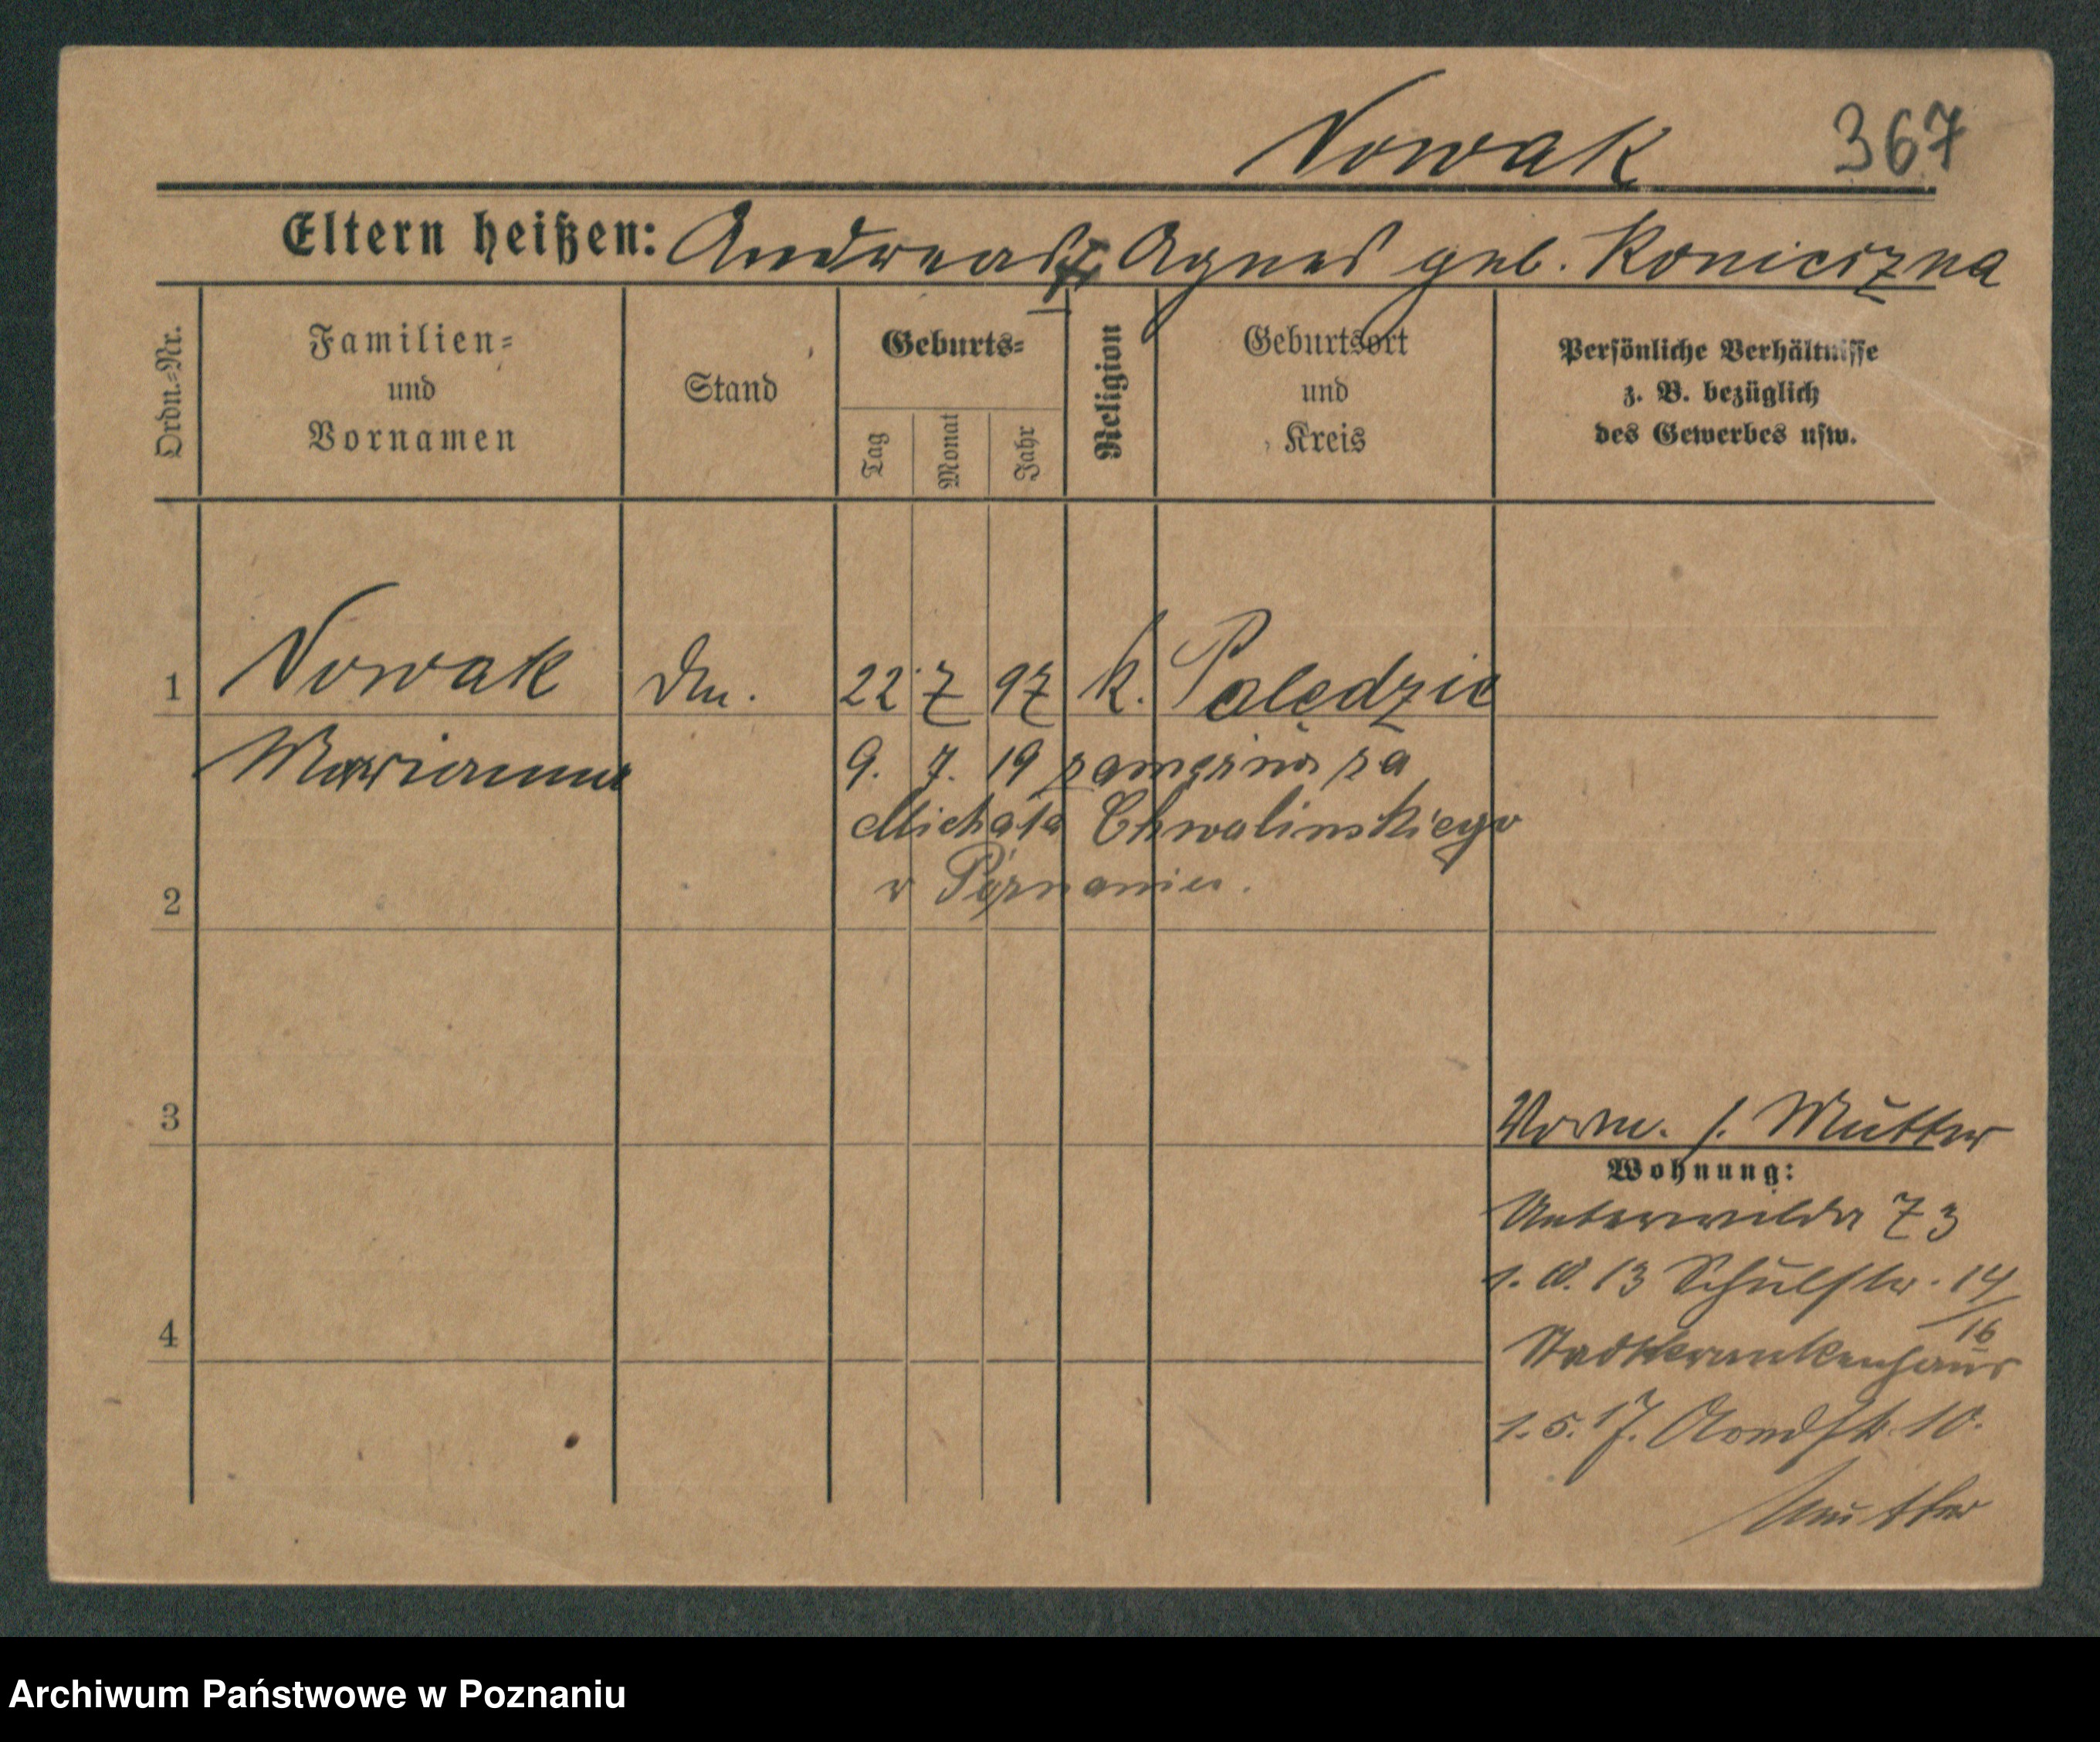 Nowak 367
Eltern heißen: Andreas Agnes geb. Koniciszna
Ordn.-Nr.
Familien-
und
Vornamen
Stand
Geburts-
Tag
Monat
Jahr
Religion
Geburtsort
und
Kreis
Persönliche Verhältnisse
z. B. bezüglich
des Gewerbes usw.
1 Nowak 22 7 97 k. Palędzie
Marianna 9. 7. 19 zamężna za
Michała Chwalinskiego
w Poznaniu.
2
3
Vorm. s. Mutter
Wohnung:
Unterwilda 73
1. 10. 13 Schulstr. 14/16
Stadtkrankenhaus
4
1. 5. 17. 10.
Mutter
Archiwum Państwowe w Poznaniu